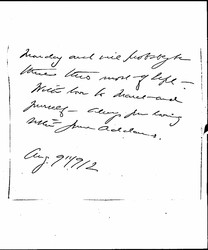 Monday and will probably be
there the most of Sept —
With love to Harriet and
yourself — always your loving
sister Jane Addams.
Aug. 9" 1912